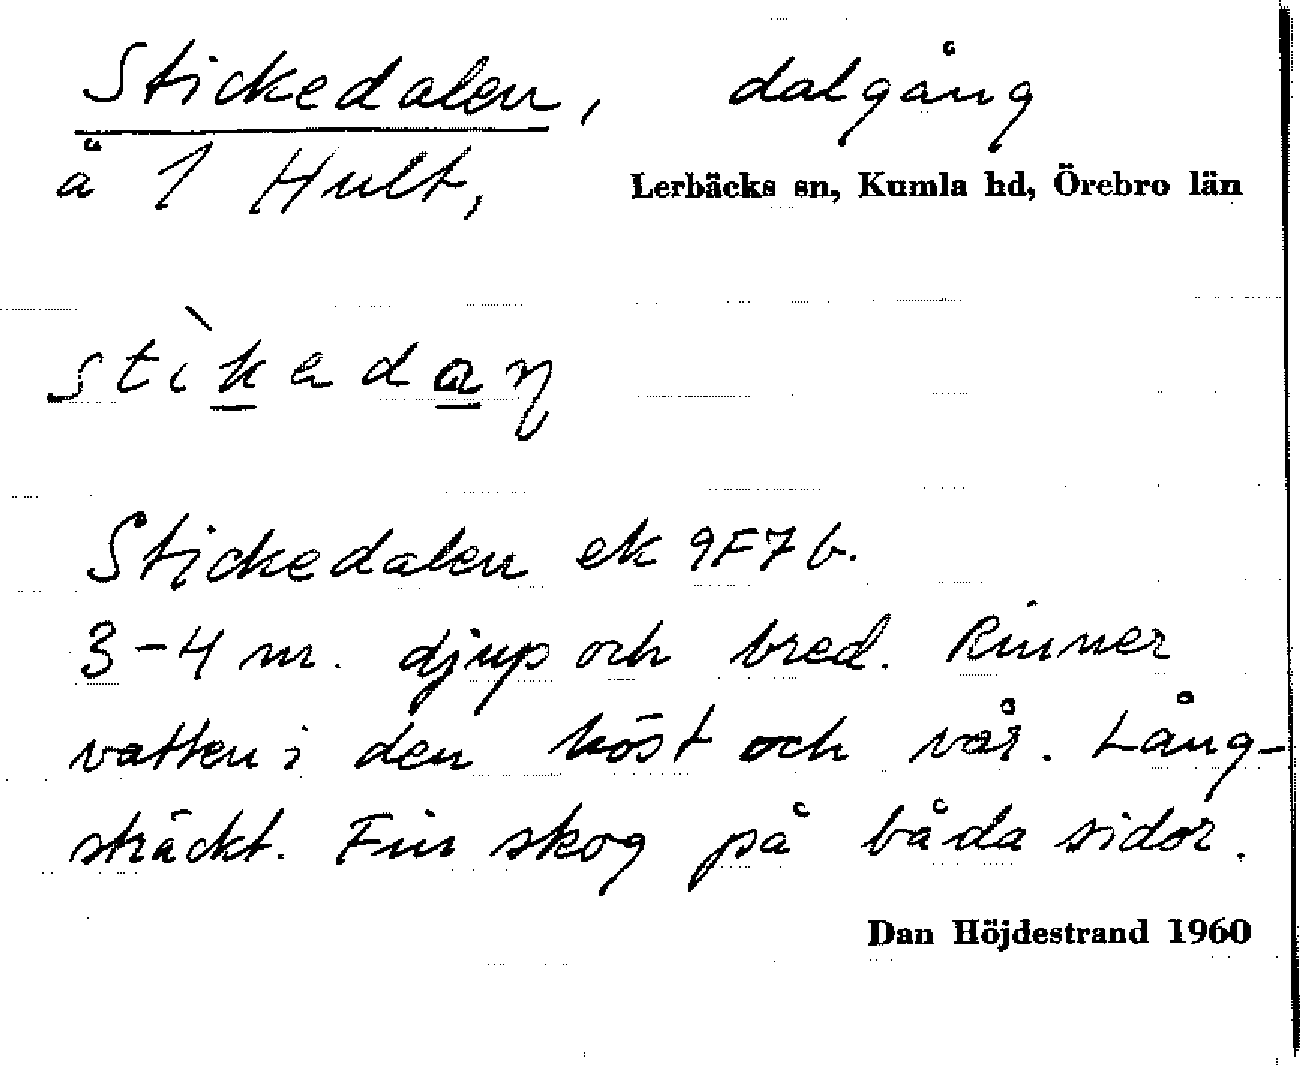 Stickedalen, dalgång
å 1 Hult, Lerbäcks sn, Kumla hd, Örebro län
stìkedaη
Stickedalen ek 9F7b.
3-4 m. djup och bred. Rinner
vatten i den höst och vår. Lång-
sträckt. Fin skog på båda sidor.
Dan Höjdestrand 1960